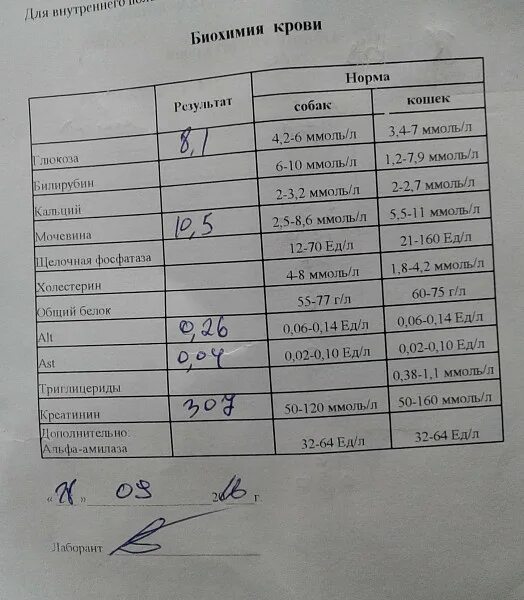 Для внутреннего
Биохимия крови
Результат Норма
собак кошек
Глюкоза 8,1 4,2-6 ммоль/л 3,4-7 ммоль/л
Билирубин 6-10 ммоль/л 1,2-7,9 ммоль/л
Кальций 2-3,2 ммоль/л 2-2,7 ммоль/л
Мочевина 10,5 2,5-8,6 ммоль/л 5,5-11 ммоль/л
Щелочная фосфатаза 12-70 Ед/л 21-160 Ед/л
Холестерин 4-8 ммоль/л 1,8-4,2 ммоль/л
Общий белок 55-77 г/л 60-75 г/л
Alt 0,26 0,06-0,14 Ед/л 0,06-0,14 Ед/л
Ast 0,04 0,02-0,10 Ед/л 0,02-0,10 Ед/л
Триглицериды 0,38-1,1 ммоль/л
Креатинин 307 50-120 ммоль/л 50-160 ммоль/л
Дополнительно:
Альфа-амилаза 32-64 Ед/л 32-64 Ед/л
« » 09 2016 г.
Лаборант